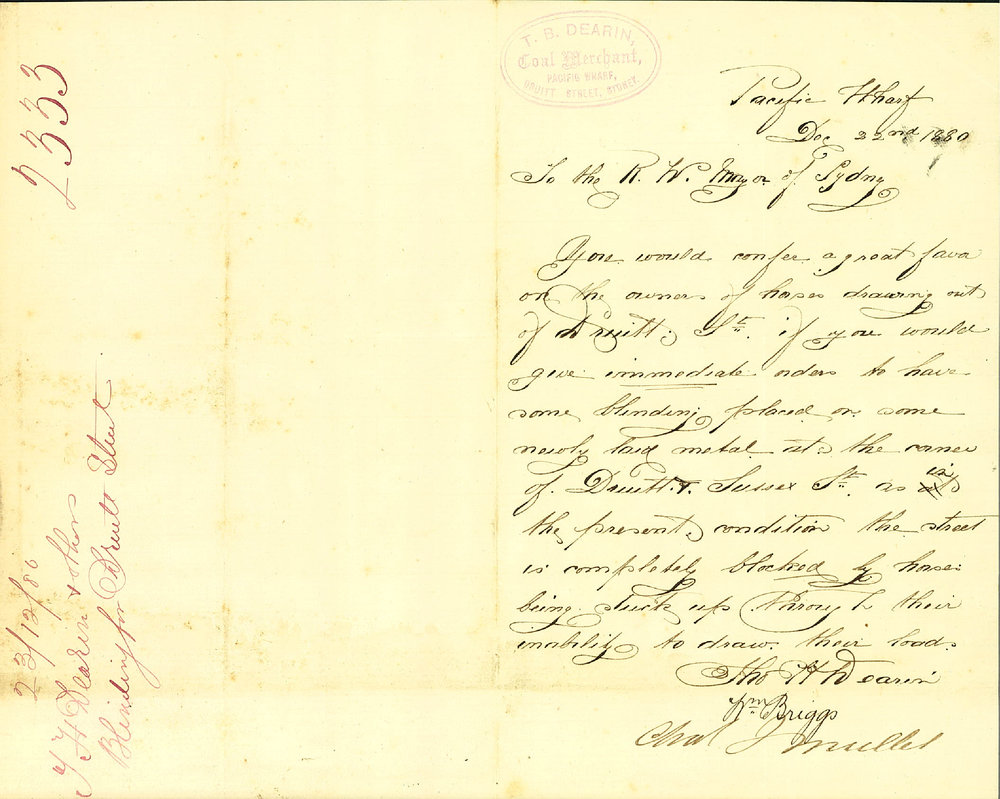 2333
23/12/80
T H Dearin & others
Blinding for Druitt Street
T. B. DEARIN,
Coal Merchant,
PACIFIC WHARF,
DRUITT STREET, SYDNEY.
Pacific Wharf
Dec 22nd 1880
To the R. W. Mayor of Sydny
You would confer a great favor
on the owners of horses drawing out
of Druitt St. if you would
give immediate orders to have
some blinding placed on some
newly laid metal at the corner
of Druitt & Sussex St. as in
the present condition the street
is completely blocked by horses
being stuck up through their
inability to draw their loads
Tho H Dearin
Wm Briggs
Chas J Mullet